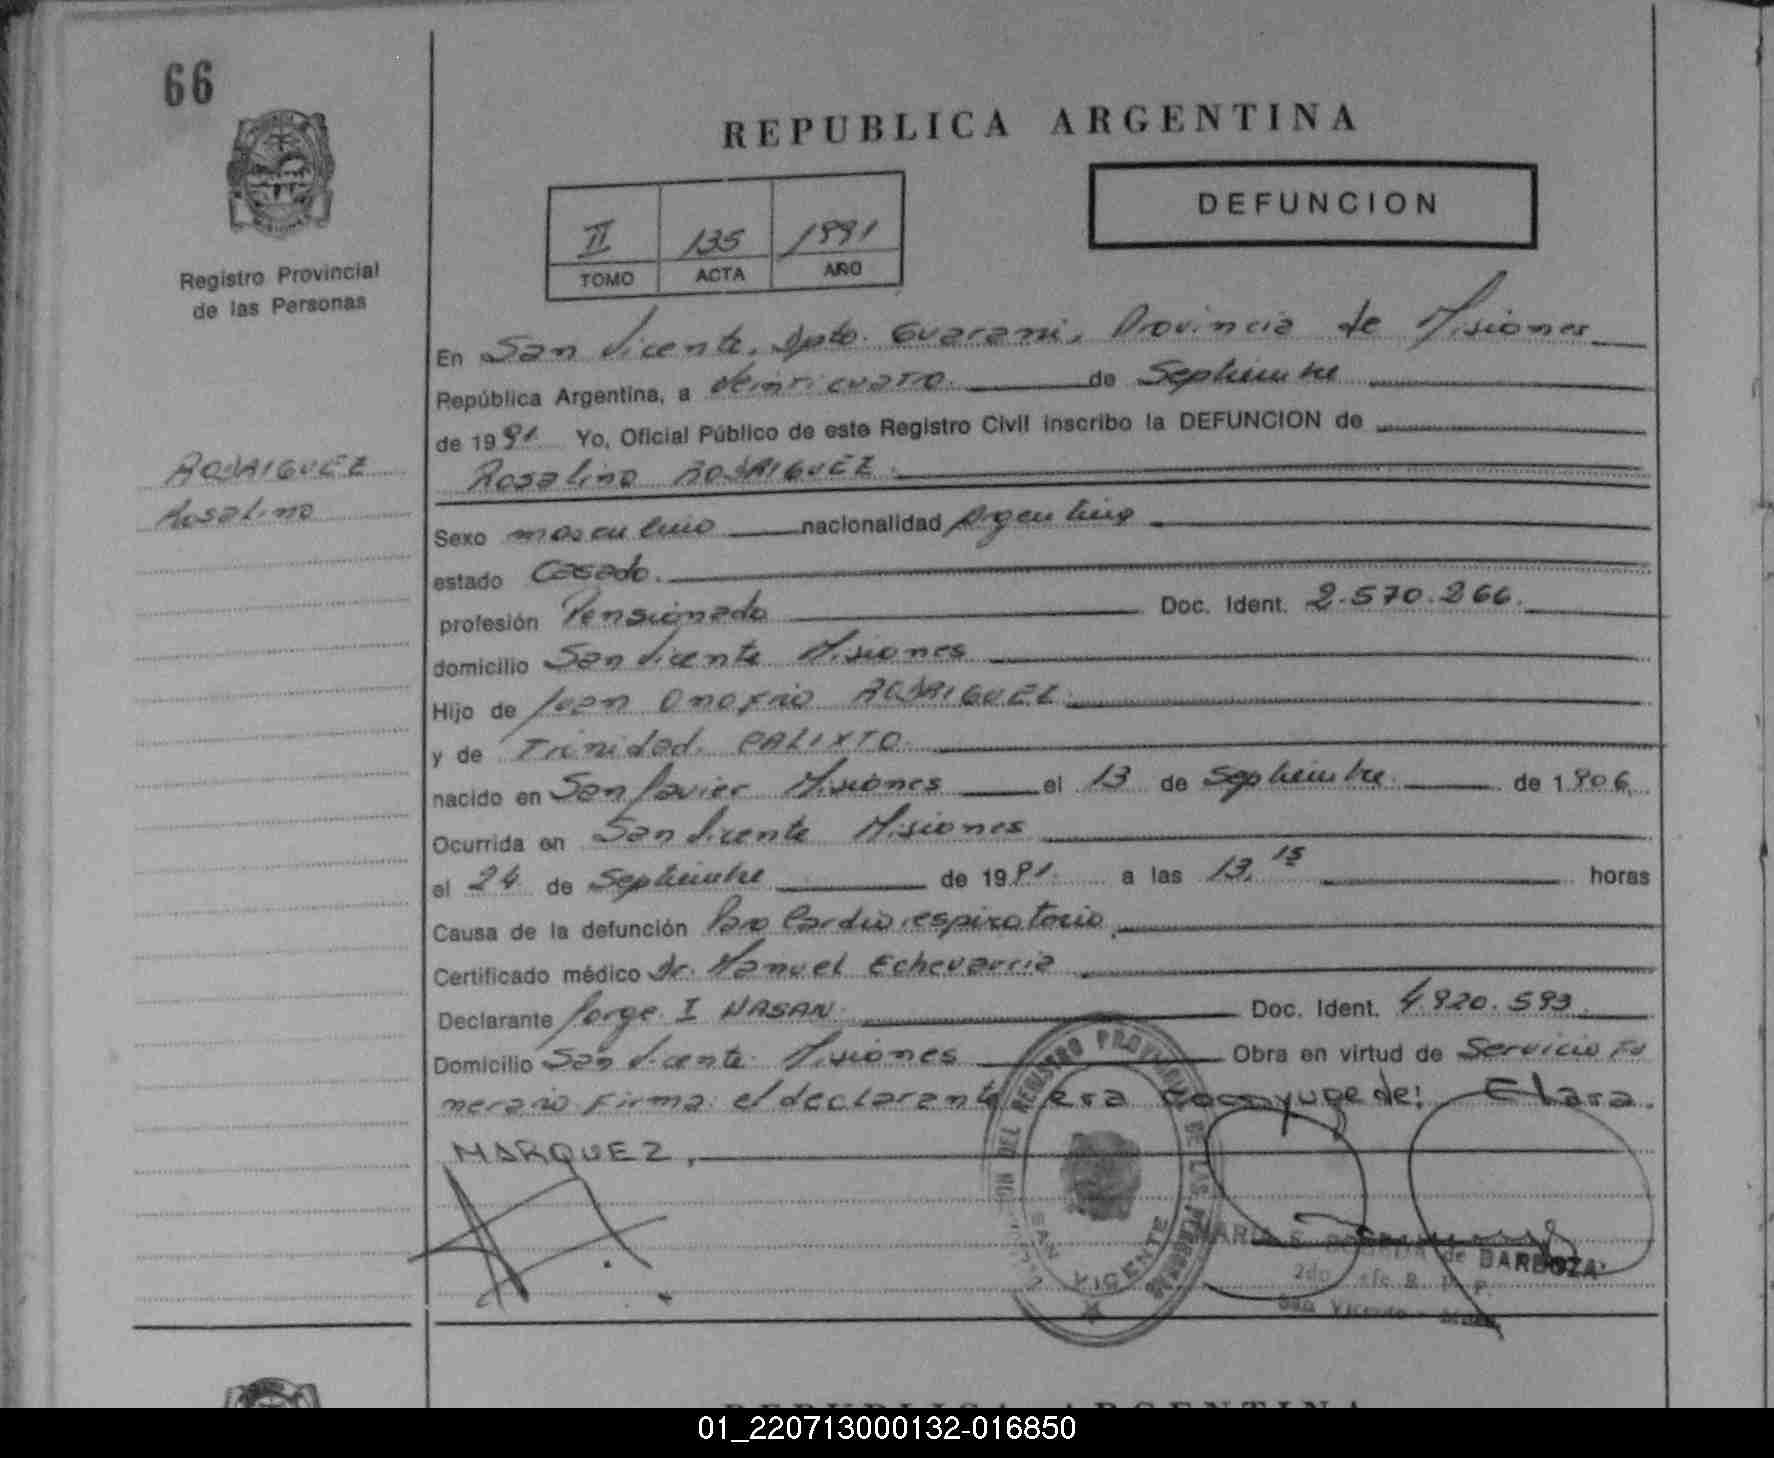 66
REPUBLICA ARGENTINA
DEFUNCION
II 135 1991
TOMO ACTA AÑO
Registro Provincial
de las Personas
En San Vicente, Dpto. Guarani, Provincia de Misiones
República Argentina, a veinticuatro de Septiembre
de 1991 Yo, Oficial Público de este Registro Civil inscribo la DEFUNCION de
RODRIGUEZ
Rosalino
Rosalino RODRIGUEZ
Sexo masculino nacionalidad Argentina
estado Casado.
profesión Pensionado Doc. Ident. 2.570.266.
domicilio San Vicente Misiones
Hijo de Juan Onofrio RODRIGUEZ
y de Trinidad CALIXTO
nacido en San Javier Misiones el 13 de Septiembre de 1906
Ocurrida en San Vicente Misiones
el 24 de Septiembre de 1991 a las 13,15 horas
Causa de la defunción Paro Cardio respiratorio
Certificado médico Dr. Manuel Echevarria
Declarante Jorge I NASAN Doc. Ident. 4.920.593
Domicilio San Vicente Misiones Obra en virtud de Servicio Fu
nerario Firma el declarante era conyuge de: Clara
MARQUEZ,
DEL REGISTRO PROVINCIAL DE LAS PERSONAS
SAN VICENTE
MARIA S. de BARBOZA
2do Jefe R. P. P.
San Vicente - Mnes.
REPUBLICA ARGENTINA
01_220713000132-016850